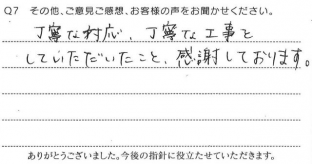 Q7 その他、ご意見ご感想、お客様の声をお聞かせください。
丁寧な対応、丁寧な工事を
していただいたこと、感謝しております。
ありがとうございました。今後の指針に役立たせていただきます。